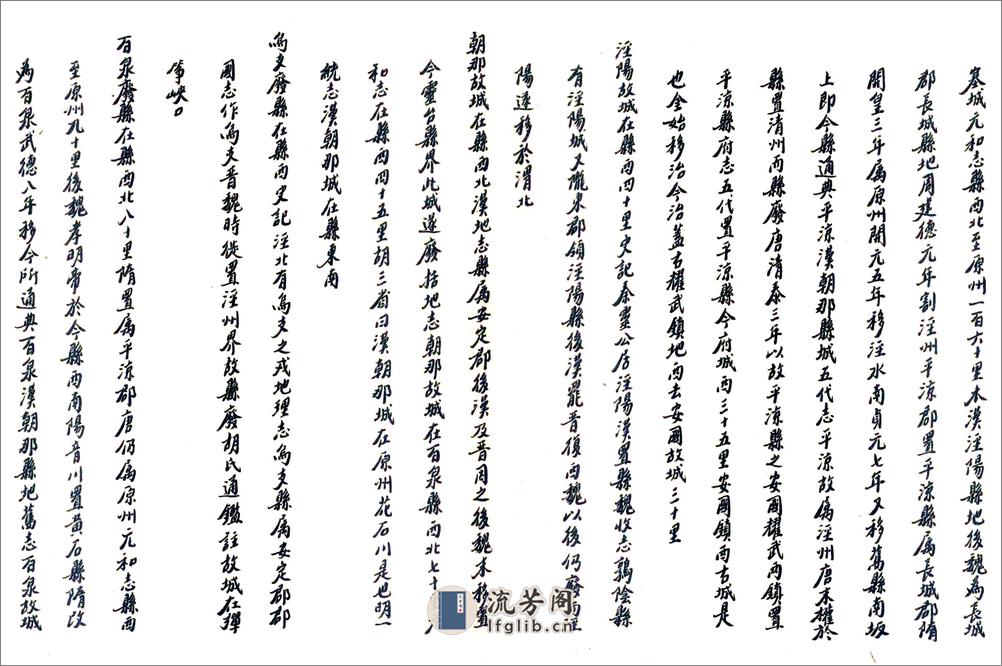 塞城元和志縣西北至原州一百六十里本漢涇陽縣地後魏為長城
郡長城縣地周建德元年割涇州平涼郡置平涼縣屬長城郡隋
開皇三年屬原州開元五年移涇水南貞元七年又移舊縣南坂
上即今縣通典平涼漢朝那縣城五代志平涼故屬涇州唐末權於
縣置清州而縣廢唐清泰三年以故平涼縣之安國耀武兩鎮置
平涼縣府志五代置平涼縣今府城西三十五里安國鎮西古城是
也金始移治今治蓋古耀武鎮地西去安國故城三十里
涇陽故城在縣西四十里史記秦靈公居涇陽漢置縣魏收志鶉陰縣
有涇陽城又隴東郡領涇陽縣後漢罷晉復西魏以後仍廢而涇
陽遂移於渭北
朝那故城在縣西北漢地志縣屬安定郡後漢及晉因之後魏末移置
今靈台縣界此城遂廢括地志朝那故城在百泉縣西北七十里元
和志在縣西四十五里胡三省曰漢朝那城在原州花石川是也明一
統志漢朝那城在縣東南
烏支廢縣在縣西史記涇北有烏支之戎地理志烏支縣屬安定郡郡
國志作烏支晉魏時徙置涇州界故縣廢胡氏通鑑註故城在彈
箏峽口
百泉廢縣在縣西北八十里隋置屬平涼郡唐仍屬原州元和志縣西
至原州九十里後魏孝明帝於今縣西南陽音川置黃石縣隋改
為百泉武德八年移今所通典百泉漢朝那縣地舊志百泉故城
流芳阁
lfglib.cn